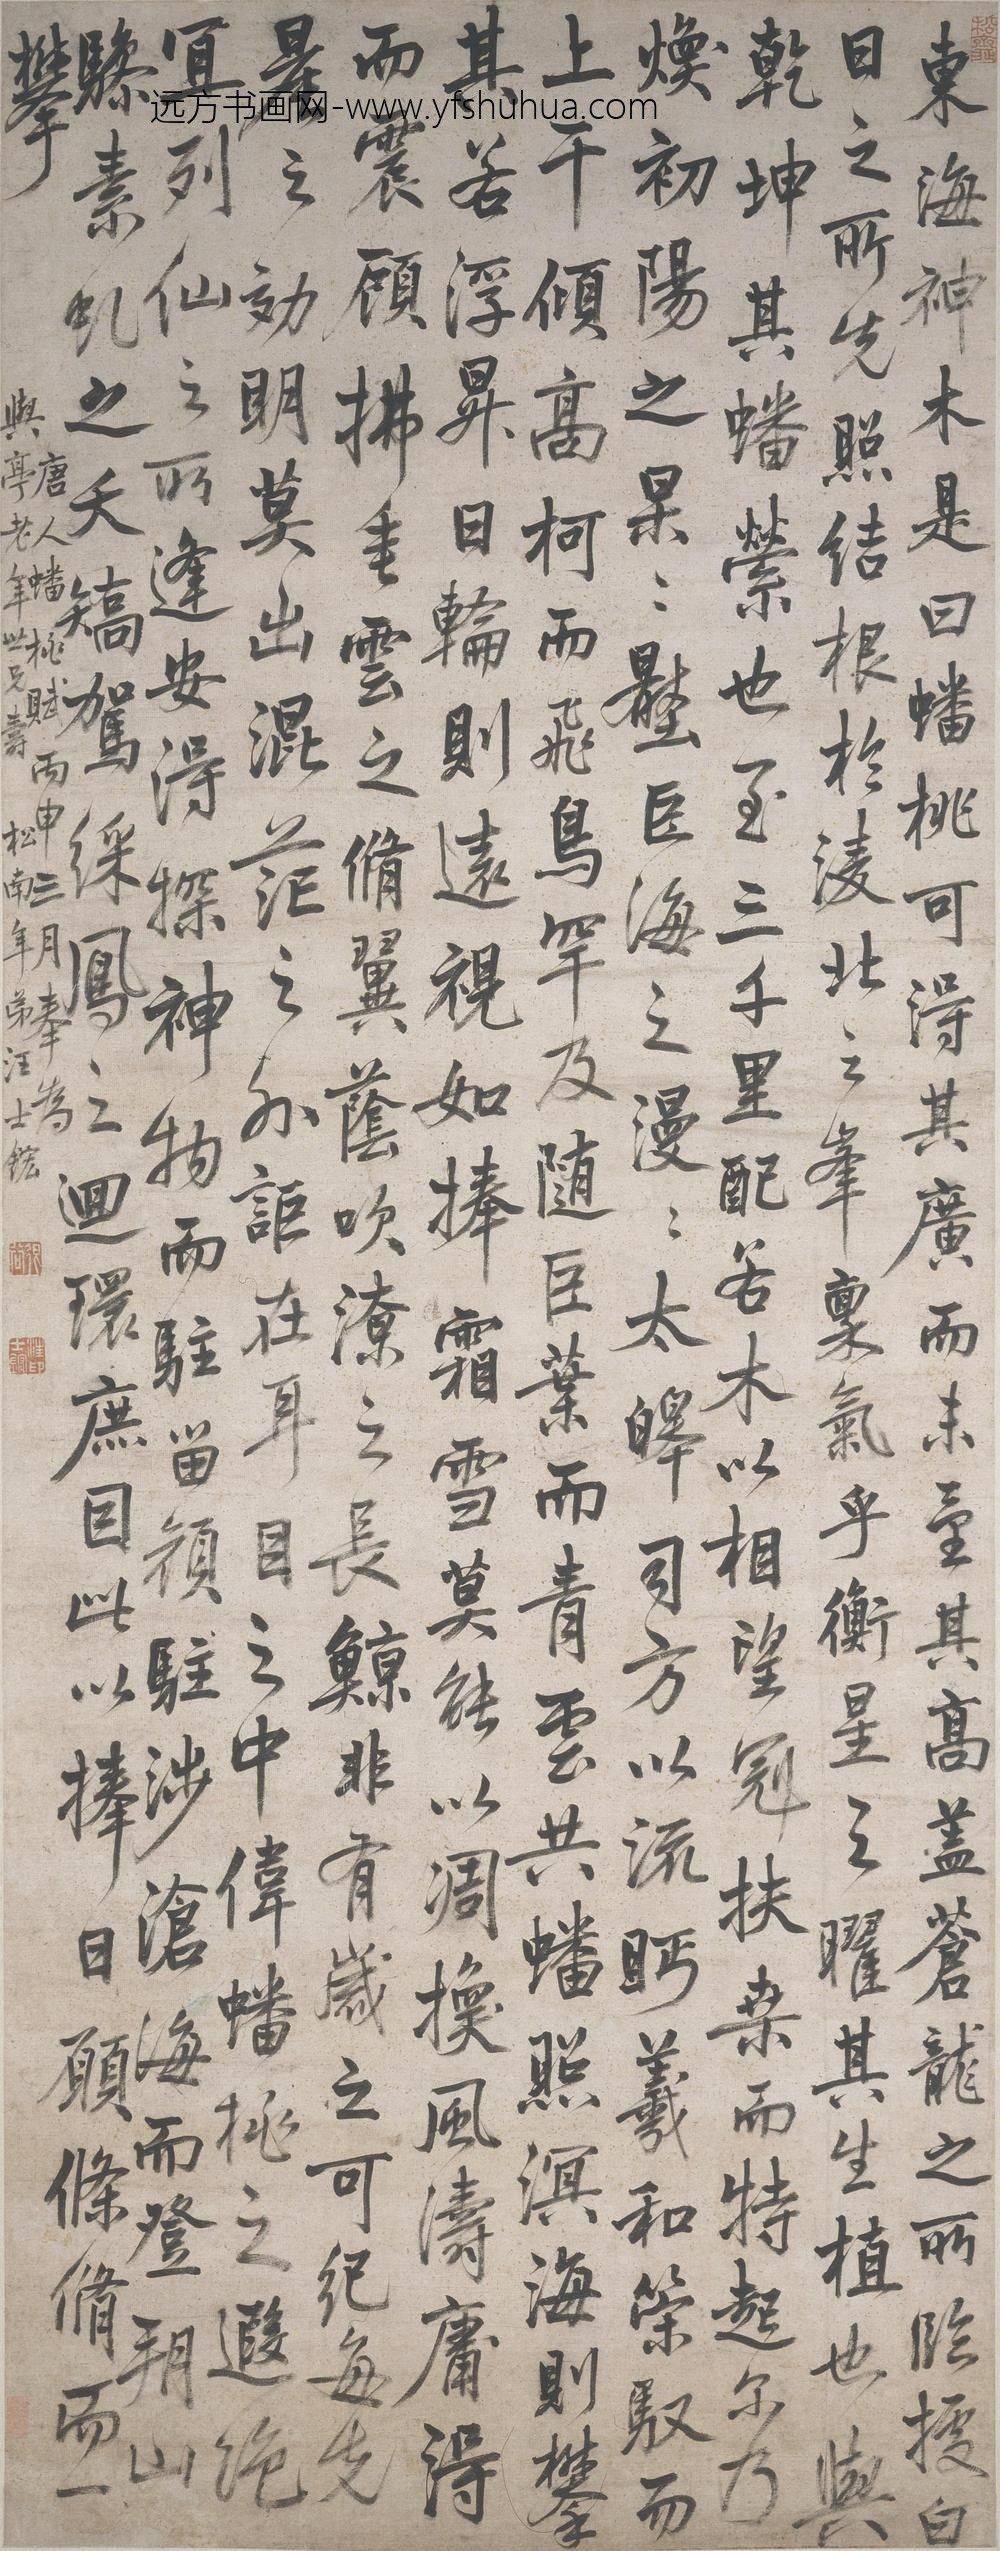 東海神木是曰蟠桃可得其廣而未量其高蓋蒼龍之所臨擾白
日之所先照結根於淩北之峯稟氣乎衡星之曜其生植也與
乾坤其蟠縈也至三千里配若木以相望冠扶桑而特起尔乃
煥初陽之杲〻懸巨海之漫〻太皞司方以流眄羲和策馭而
上干傾高柯而飛鳥罕及隨巨葉而青雲共蟠照溟海則攀
其若浮昇日輪則遠視如捧霜雪莫能以凋換風濤庸得
而震頋拂垂雲之脩翼蔭吹潦之長鯨非有歲之可紀每先
晷之効明莫出混茫之外詎在耳目之中偉蟠桃之遐絶
寘列仙之所逢安得探神物而駐留預駐涉滄海而登朔山
驂素虬之夭矯駕綵鳳之迴環庶因此以捧日願條脩而一
攀
唐人蟠桃賦丙申三月奉為
與亭老年世兄壽 松南年弟汪士鋐
远方书画网-www.yfshuhua.com